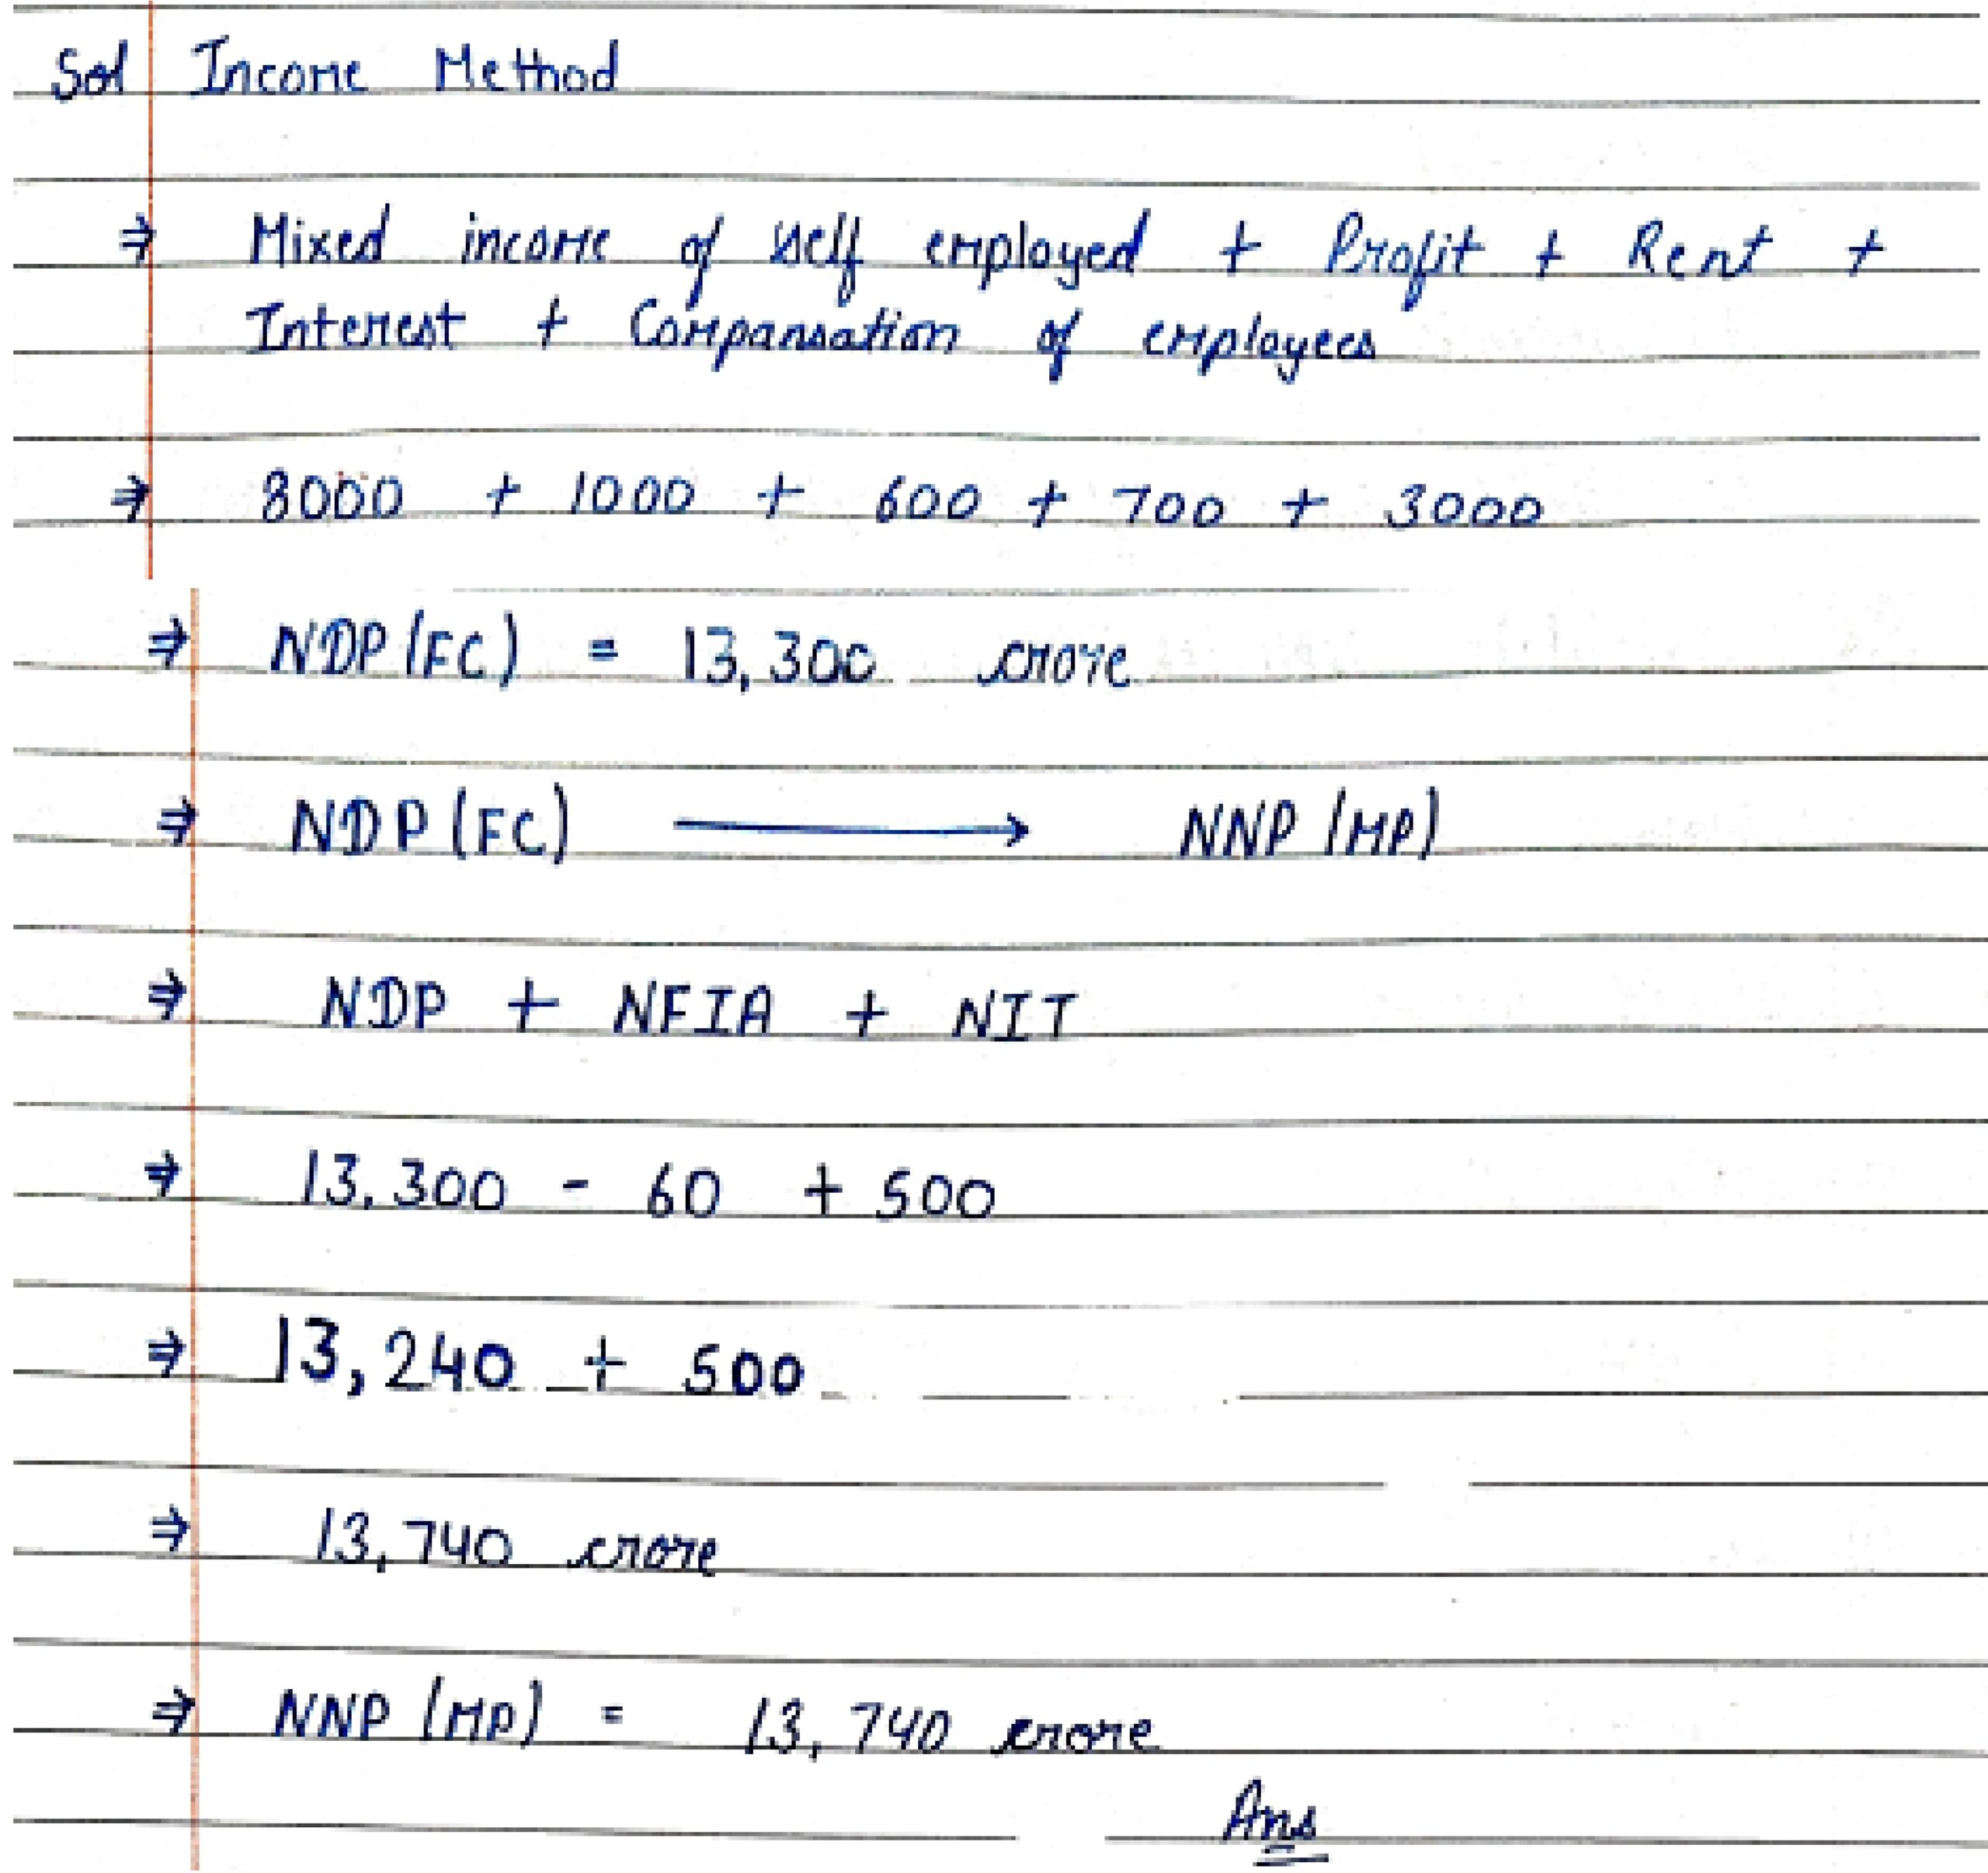 Sol Income Method
⇒ Mixed income of self employed + Profit + Rent +
Interest + Compansation of employees
⇒ 8000 + 1000 + 600 + 700 + 3000
⇒ NDP (FC) = 13,300 crore
⇒ NDP (FC) ⟶ NNP (MP)
⇒ NDP + NFIA + NIT
⇒ 13,300 - 60 + 500
⇒ 13,240 + 500
⇒ 13,740 crore
⇒ NNP (MP) = 13,740 crore
Ans